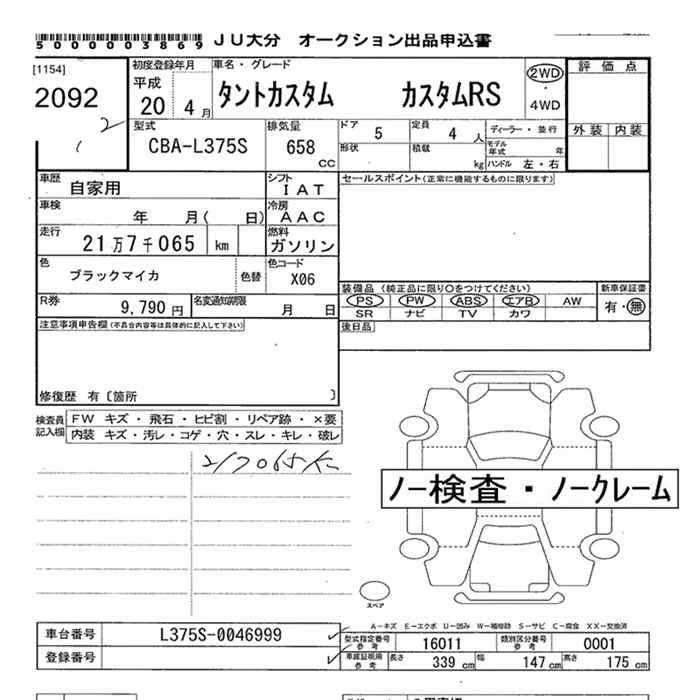 5000003869 JU大分 オークション出品申込書
[1154]
2092
初度登録年月 平成 20 4月
車名・グレード タントカスタム カスタムRS
2WD ・ 4WD
評価点
外装 内装
型式 CBA-L375S
排気量 658 cc
ドア 5
定員 4人
ディーラー・並行
形状
積載 kg
モデル年式 年
ハンドル 左・右
車歴 自家用
シフト IAT
セールスポイント(正常に機能するものに限ります)
車検 年 月( 日)
冷房 AAC
走行 21万7千065 km
燃料 ガソリン
色 ブラックマイカ 色替
色コード X06
装備品(純正品に限り○をつけてください) 新車保証書
PS PW ABS エアB AW 有・無
SR ナビ TV カワ
R券 9,790円
名変通知期限 月 日
後日品
注意事項申告欄(不具合内容等は具体的に記入して下さい)
修復歴 有〔箇所 〕
検査員記入欄 FW キズ・飛石・ヒビ割・リペア跡・×要
内装 キズ・汚レ・コゲ・穴・スレ・キレ・破レ
217065K
ノー検査・ノークレーム
スペア
A-キズ E-エクボ U-凹み W-補修跡 S-サビ C-腐食 XX-交換済
車台番号 L375S-0046999
型式指定番号参考 16011 類別区分番号参考 0001
登録番号
車庫証明用参考 長さ 339cm 幅 147cm 高さ 175cm